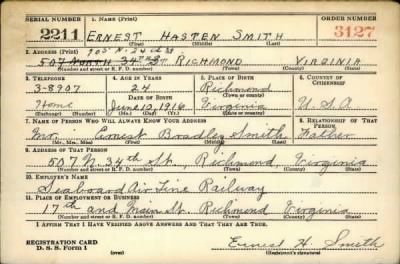 SERIAL NUMBER
1. NAME (Print)
ORDER NUMBER
2211 ERNEST HASTEN SMITH 3127
(First) (Middle) (Last)
2. ADDRESS (Print)
905 N. 24th St.
507 NORTH 34TH ST RICHMOND VIRGINIA
(Number and street or R. F. D. number) (Town) (County) (State)
3. TELEPHONE
4. AGE IN YEARS
5. PLACE OF BIRTH
6. COUNTRY OF CITIZENSHIP
3-8907 24 Richmond
DATE OF BIRTH
(Town or county)
Home June 10, 1916 Virginia U.S.A
(Exchange) (Number) (Mo.) (Day) (Yr.) (State or country)
7. NAME OF PERSON WHO WILL ALWAYS KNOW YOUR ADDRESS
8. RELATIONSHIP OF THAT PERSON
Mr. Ernest Bradley Smith Father
(Mr., Mrs., Miss) (First) (Middle) (Last)
9. ADDRESS OF THAT PERSON
507 N. 34th St. Richmond, Virginia
(Number and street or R. F. D. number) (Town) (County) (State)
10. EMPLOYER'S NAME
Seaboard Air Line Railway
11. PLACE OF EMPLOYMENT OR BUSINESS
17th and Main St. Richmond Virginia
(Number and street or R. F. D. number) (Town) (County) (State)
I AFFIRM THAT I HAVE VERIFIED ABOVE ANSWERS AND THAT THEY ARE TRUE.
REGISTRATION CARD
D. S. S. Form 1 (over)
Ernest H. Smith
(Registrant's signature)